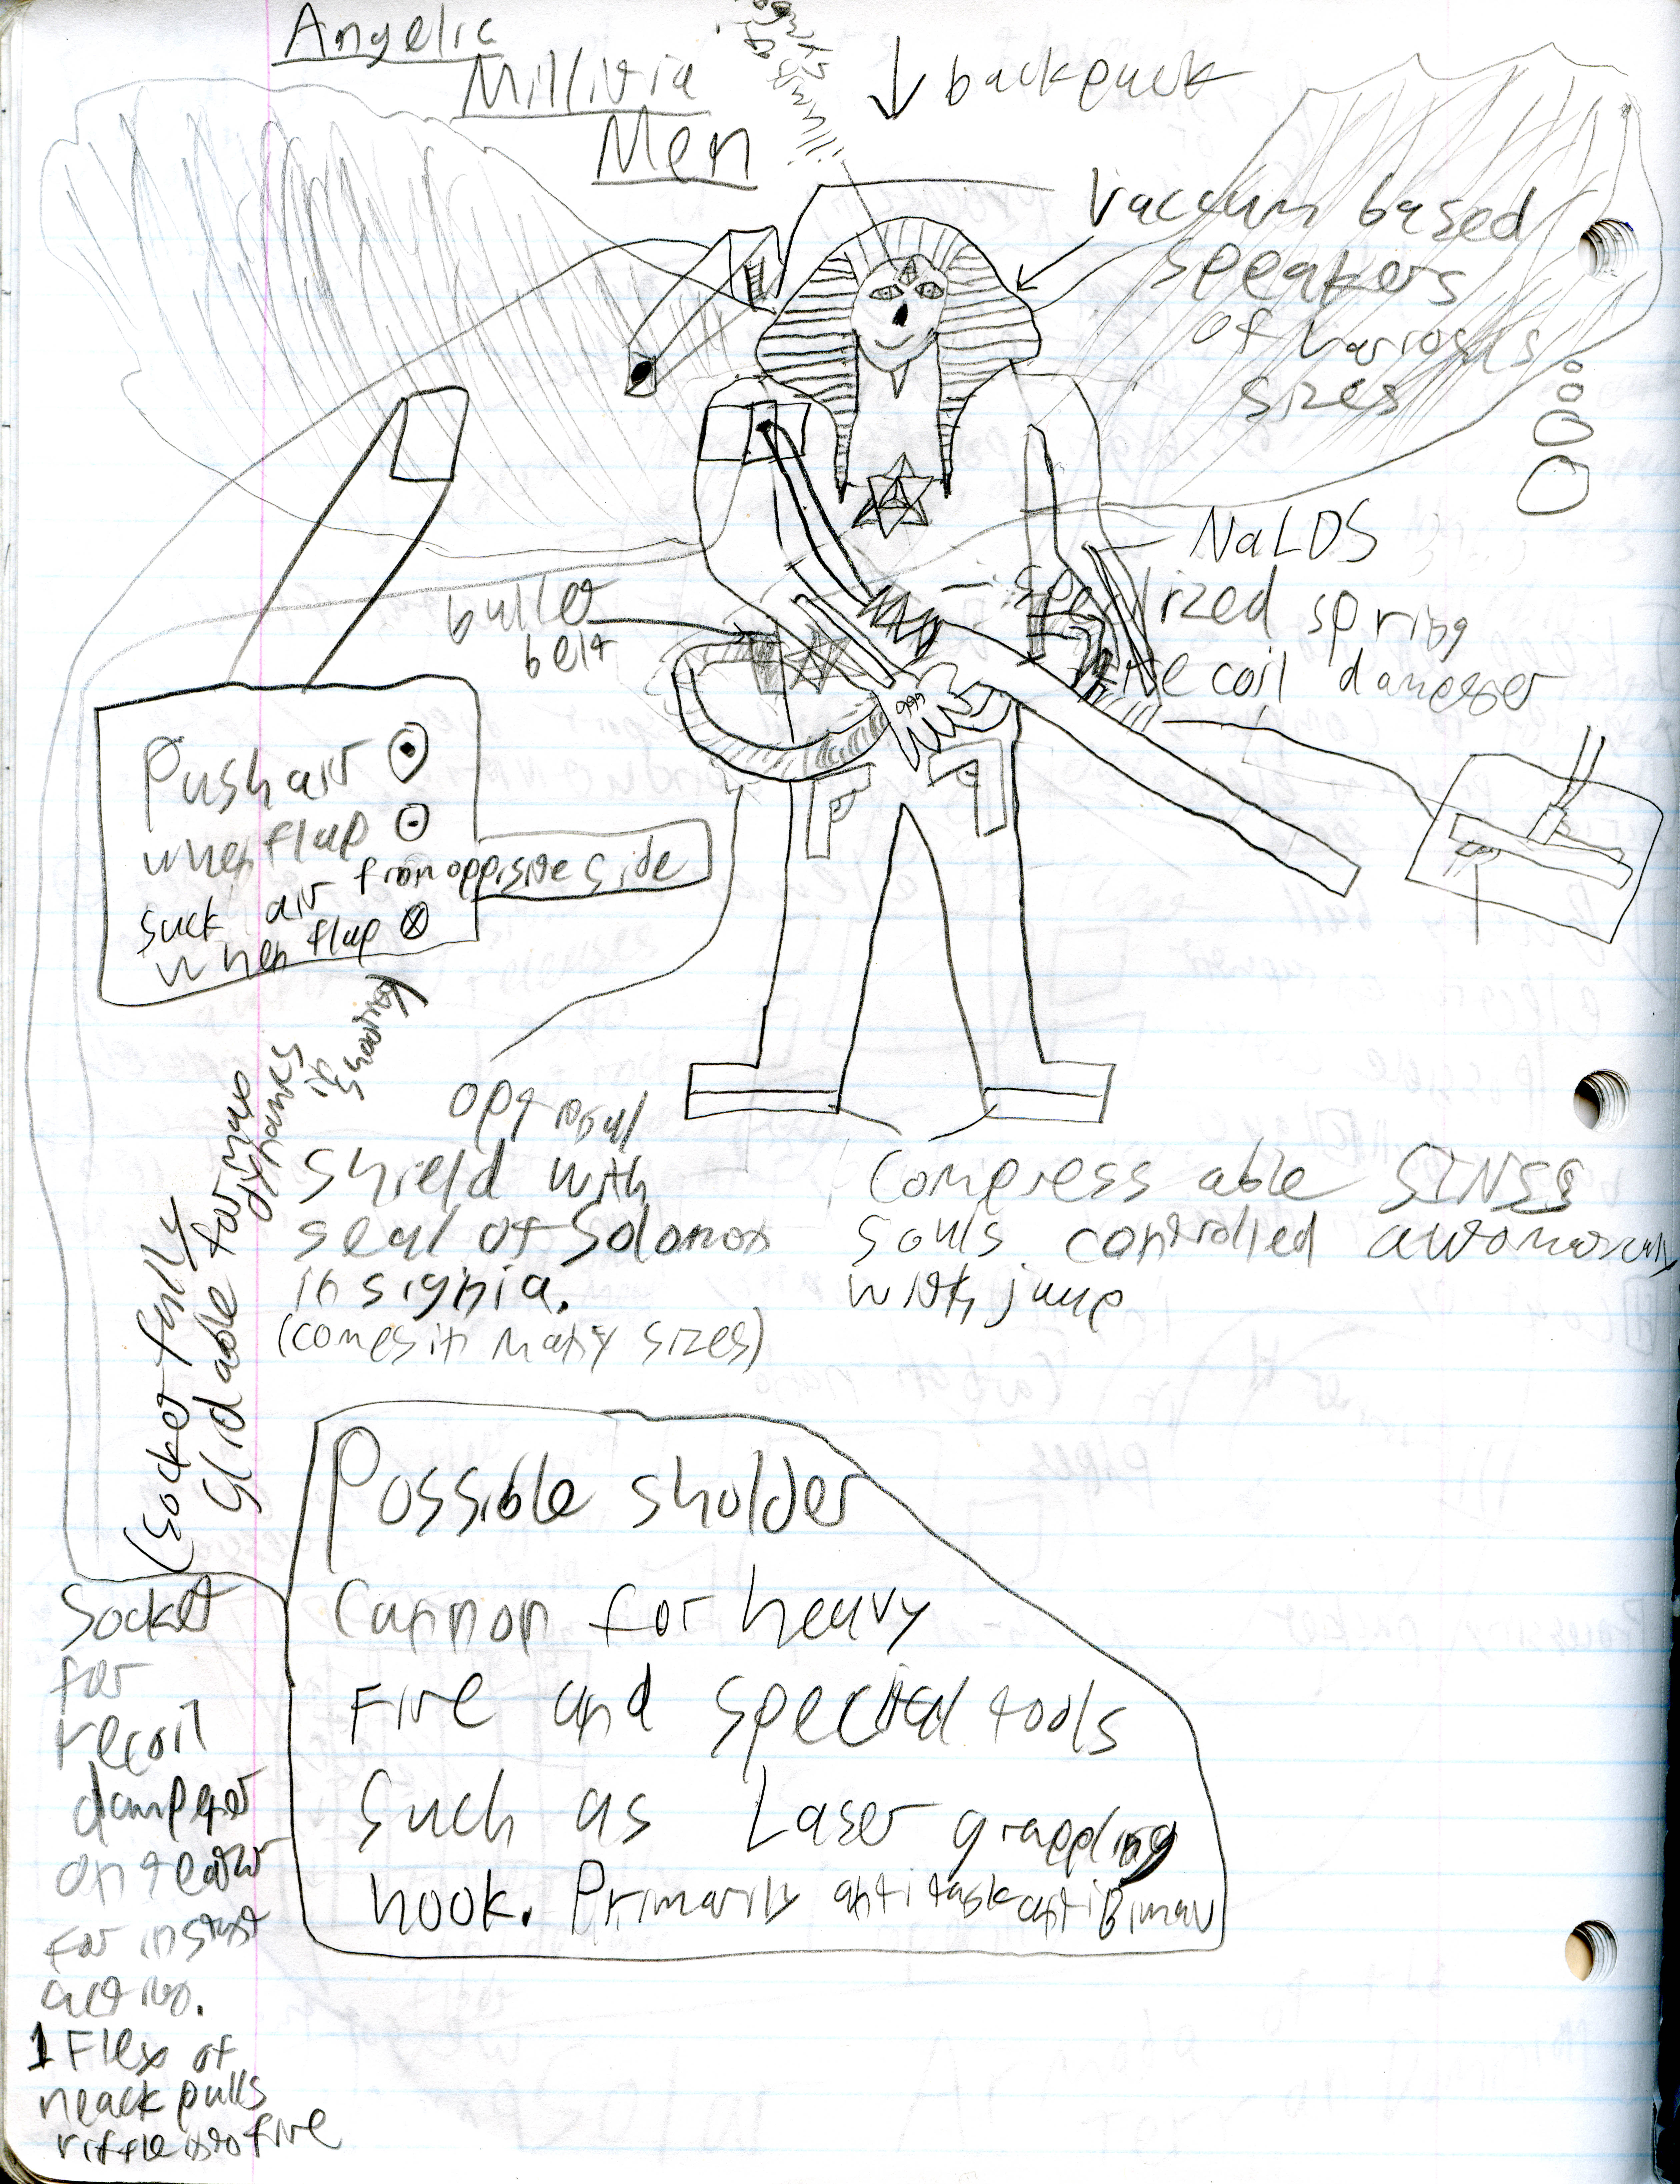 Angelic
Millitia
Men
backpack
Vacuum based
speakers
of variosus
sizes
NaLDS
spring
recoil dampener
bullet
belt
Push air
when flap
suck air from opposite side
when flap
optional
shield with
seal of Solomon
insignia.
(comes in many sizes)
Compress able SINSS
souls controlled automatically
with jump
(socket fully
Glidable for max
in
shooting)
Possible sholder
Cannon for heavy
Fire and special tools
Such as Laser grappling
hook. Primarily anti tank anti
Socket
for
recoil
dampener
on rear
for instant
action.
1 Flex of
neack pulls
riffle into fire